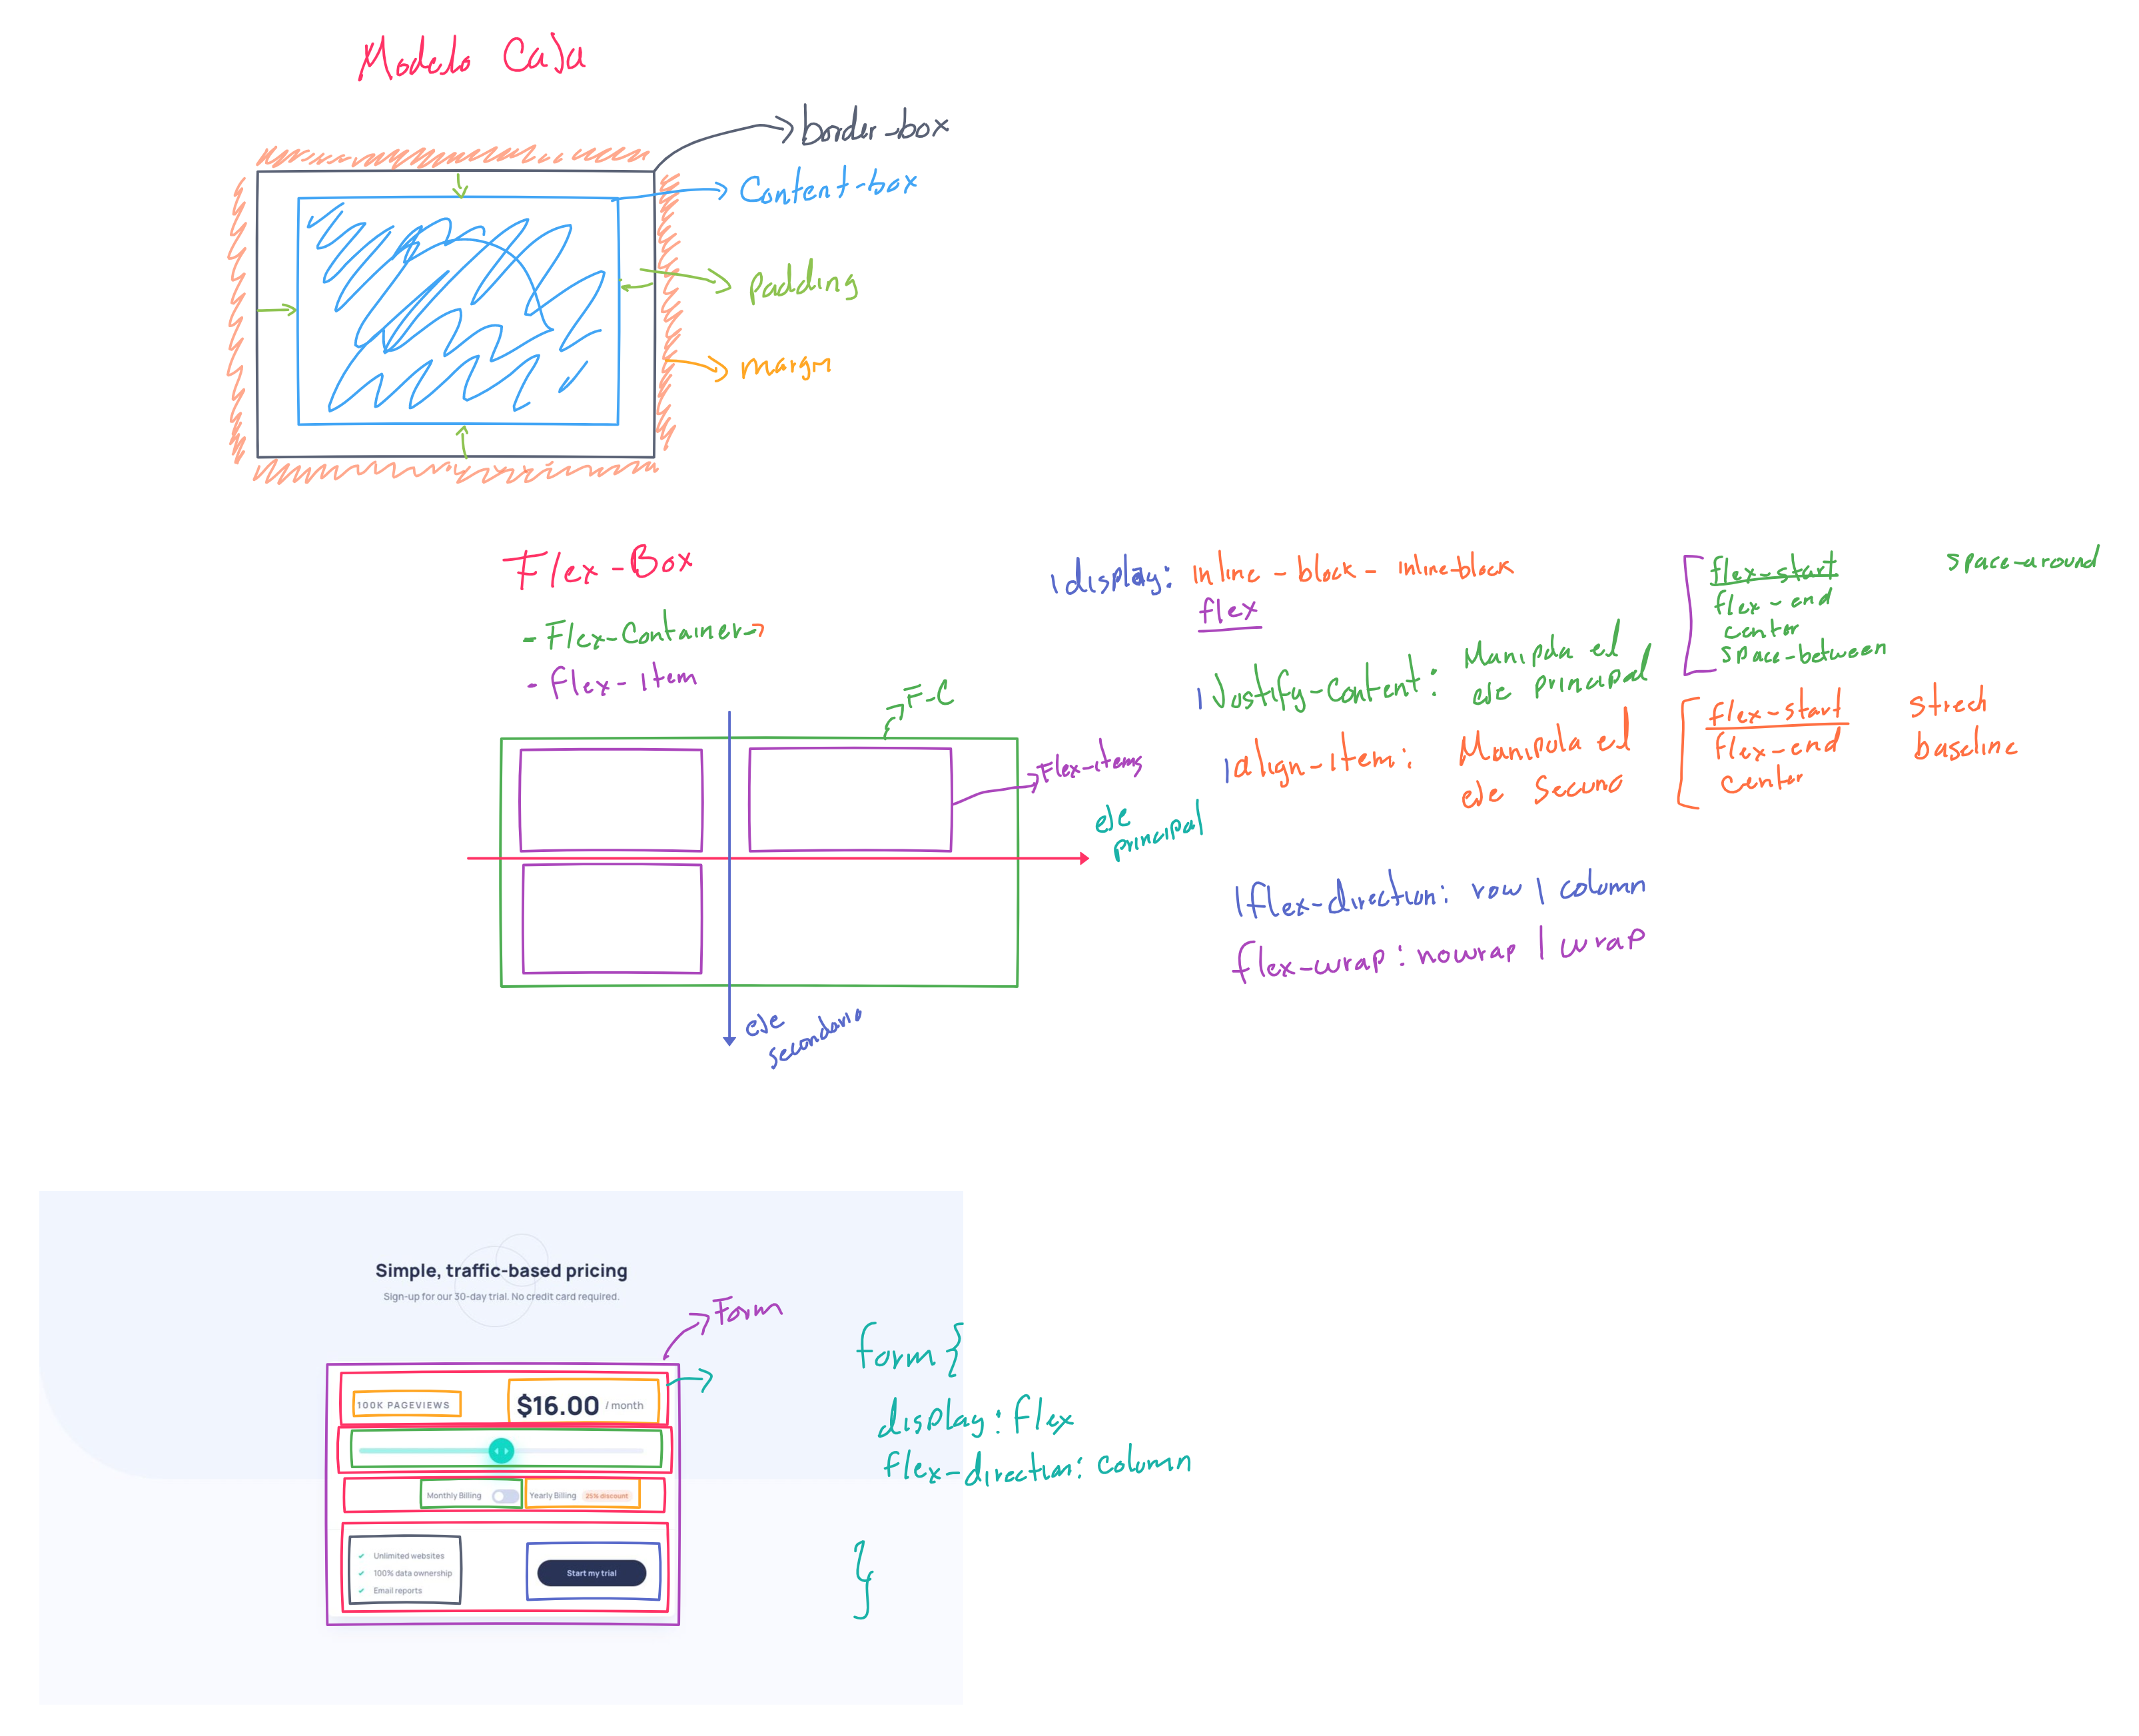 Modelo Caja
border-box
Content-box
Padding
margin
Flex-Box
- Flex-Container
- flex-item
display: inline - block - inline-block
flex
Justify-Content: Manipula el
eje principal
flex-start
flex-end
center
space-between
space-around
align-item: Manipula el
eje Secund
flex-start
flex-end
center
Strech
baseline
F-C
Flex-items
eje
principal
eje
secundario
flex-direction: row | column
flex-wrap: nowrap | wrap
Simple, traffic-based pricing
Sign-up for our 30-day trial. No credit card required.
Form
100K PAGEVIEWS
$16.00 / month
Monthly Billing
Yearly Billing 25% discount
Unlimited websites
100% data ownership
Email reports
Start my trial
form {
display: flex
flex-direction: column
}